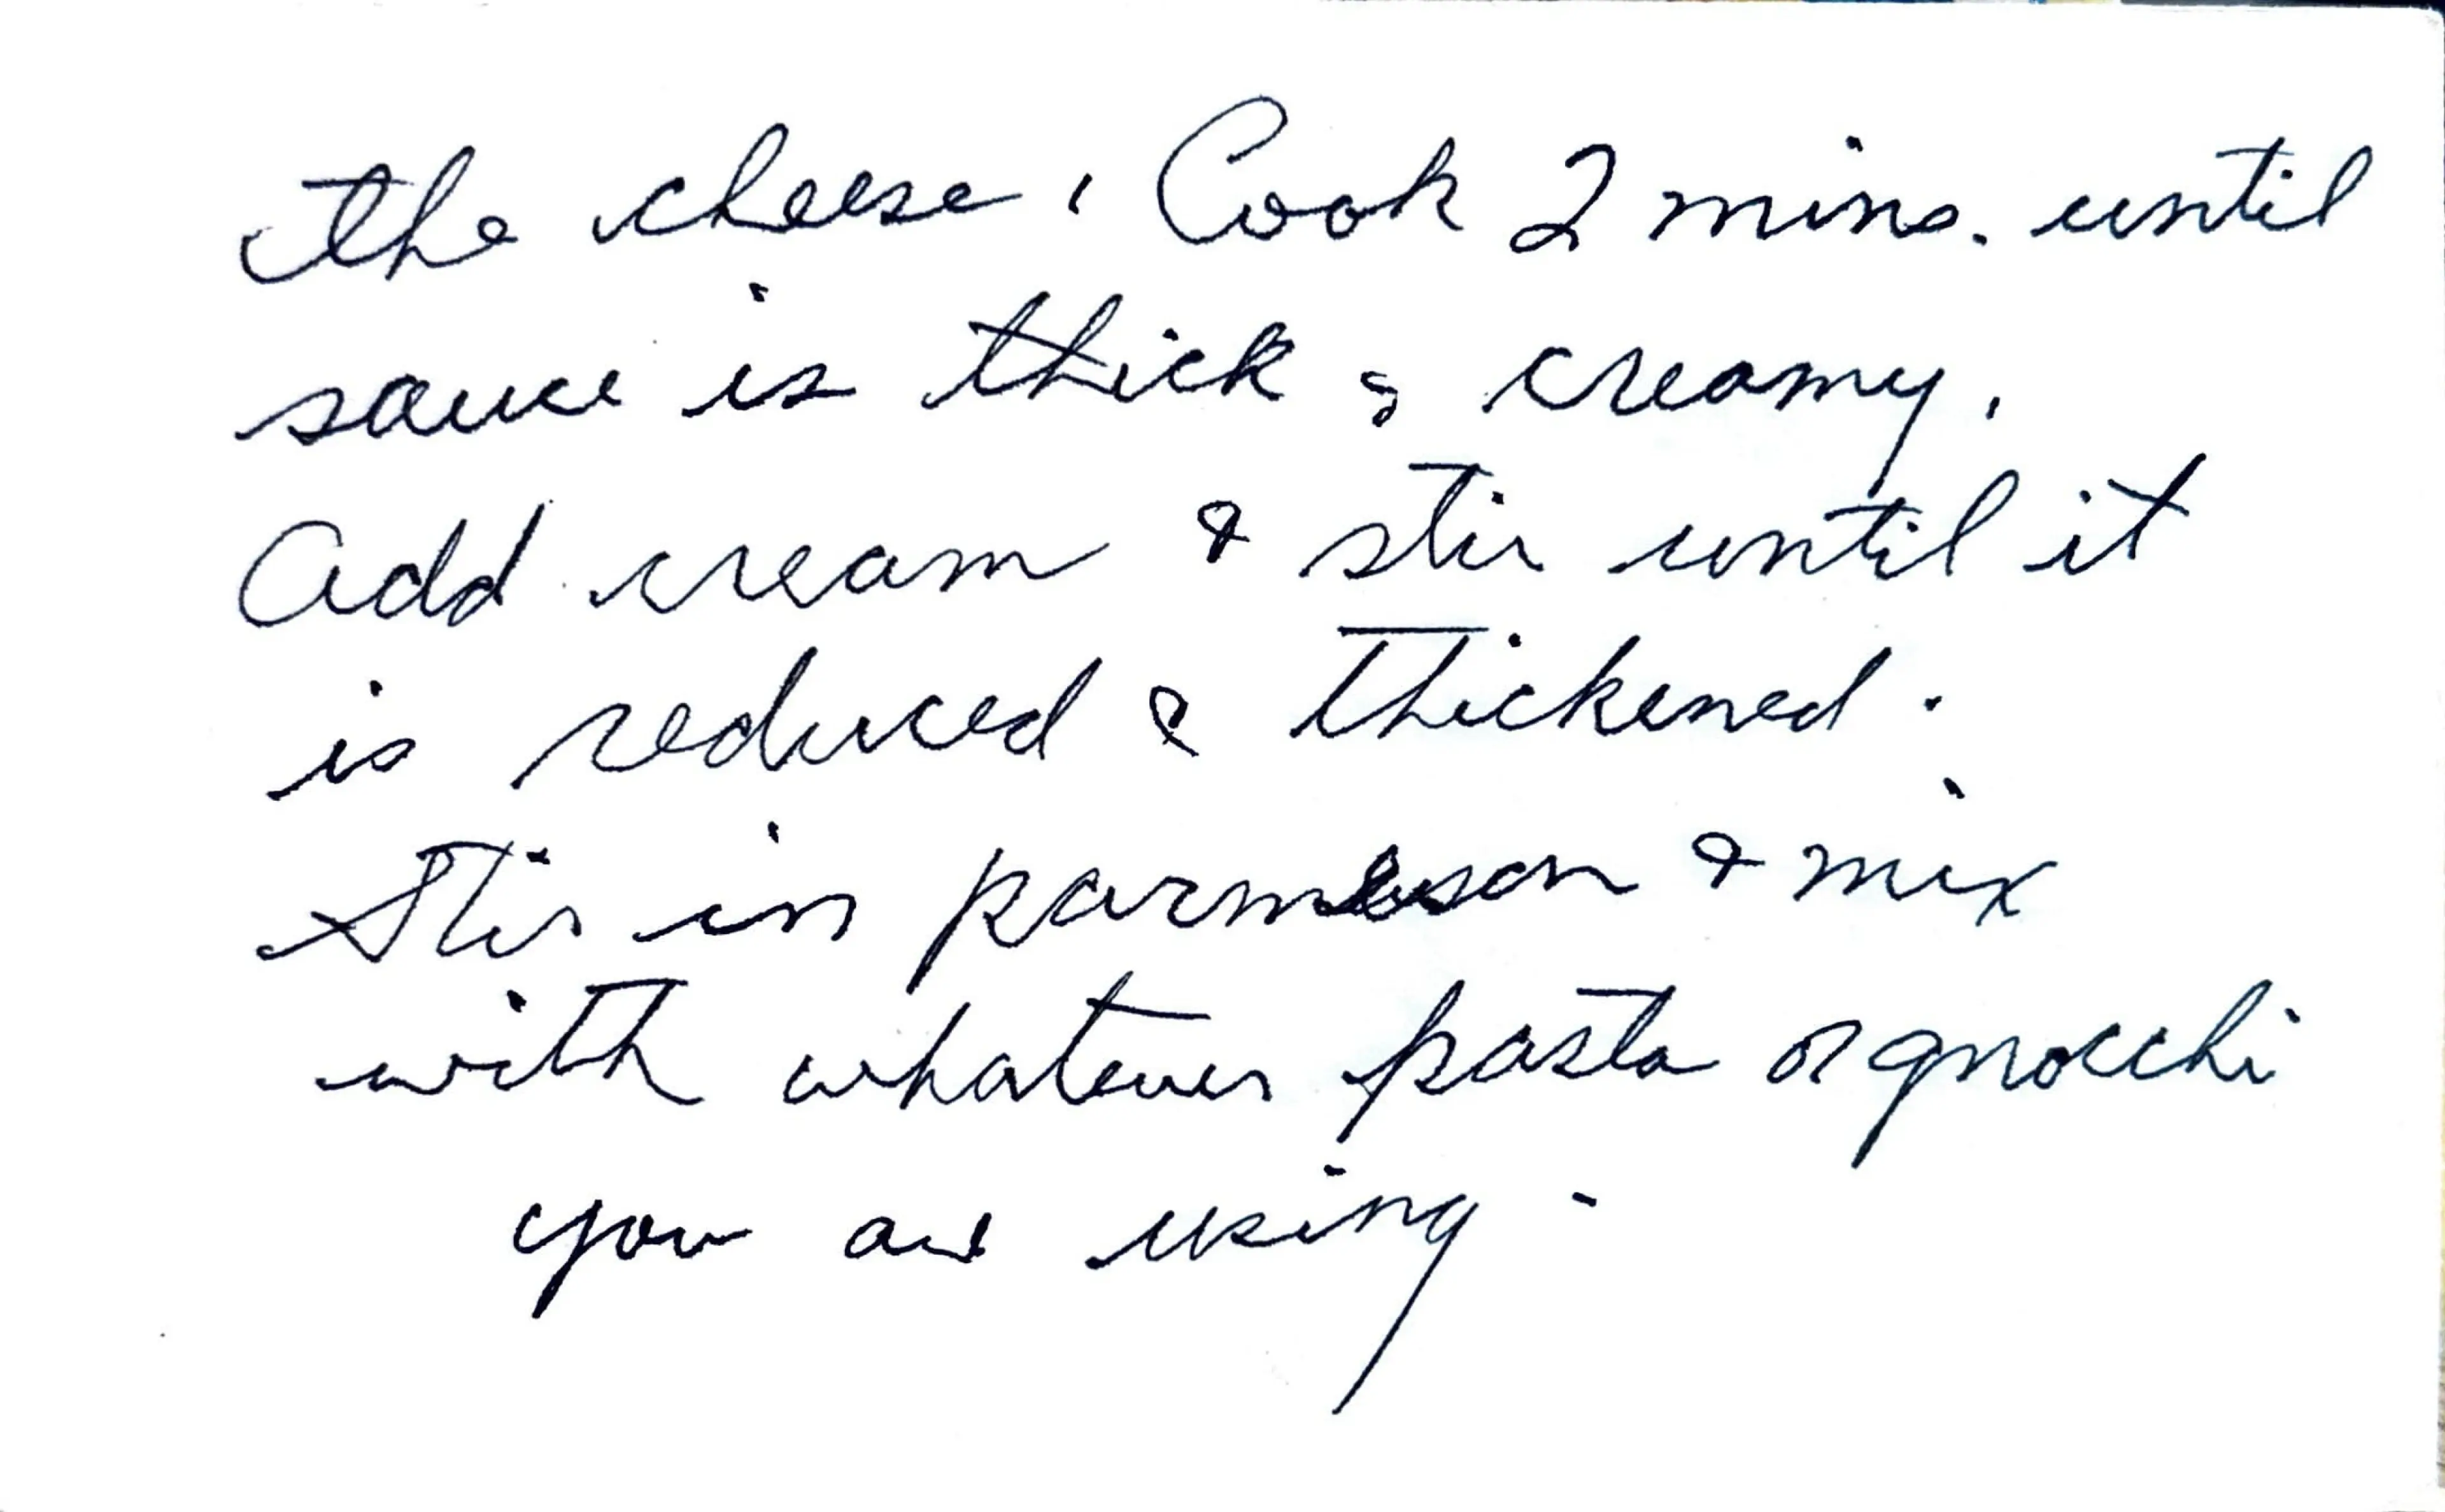 the cheese. Cook 2 mins. until
sauce is thick & creamy.
Add cream & stir until it
is reduced & thickened.
Stir in parmesan & mix
with whatever pasta or gnocchi
you are using.